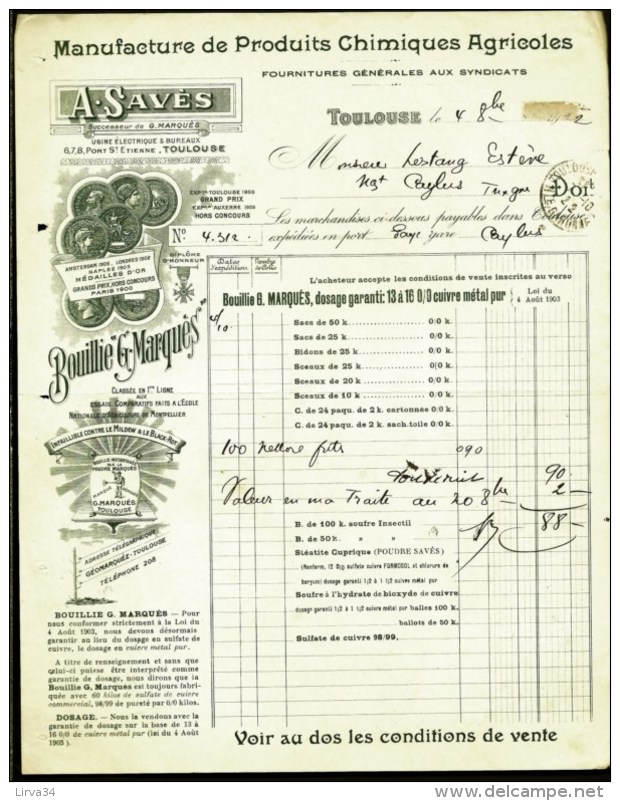 Manufacture de Produits Chimiques Agricoles
FOURNITURES GÉNÉRALES AUX SYNDICATS
A. SAVÈS
Successeur de G. MARQUÈS
USINE ÉLECTRIQUE & BUREAUX
6,7,8, PORT ST ETIENNE, TOULOUSE
TOULOUSE le 4 8bre
Monsieur Lestang Estève
Ngt Caylus
Doit
Les marchandises ci-dessous payables dans Toulouse
expédiées en port payé gare Caylus
No 4.312
EXPON TOULOUSE 1908
GRAND PRIX
EXPON AUXERRE 1908
HORS CONCOURS
AMSTERDAM 1902, LONDRES 1902
NAPLES 1903
MÉDAILLES D'OR
GRANDS PRIX, HORS CONCOURS
PARIS 1900
DIPLÔME
D'HONNEUR
Bouillie "G. Marquès"
CLASSÉE EN 1RE LIGNE
AUX
ESSAIS COMPARATIFS FAITS A L'ÉCOLE
NATIONALE D'AGRICULTURE DE MONTPELLIER
INFAILLIBLE CONTRE LE MILDEW & LE BLACK-ROT
POUDRE MARQUÈS
G. MARQUÈS
TOULOUSE
ADRESSE TÉLÉGRAPHIQUE
GÉOMARQUÈZ-TOULOUSE
TÉLÉPHONE 208
BOUILLIE G. MARQUÈS — Pour
nous conformer strictement à la Loi du
4 Août 1903, nous devons désormais
garantir au lieu du dosage en sulfate de
cuivre, le dosage en cuivre métal pur.
A titre de renseignement et sans que
celui-ci puisse être interprété comme
garantie de dosage, nous dirons que la
Bouillie G. Marquès est toujours fabri-
quée avec 60 kilos de sulfate de cuivre
commercial, 98/99 de pureté par 0/0 kilos.
DOSAGE. — Nous la vendons avec la
garantie de dosage sur la base de 13 à
16 0/0 de cuivre métal pur (loi du 4 Août
1903).
Dates
d'expédition
Nombre
de Colis
L'acheteur accepte les conditions de vente inscrites au verso
Bouillie G. MARQUÈS, dosage garanti: 13 à 16 0/0 cuivre métal pur
Loi du
4 Août 1903
Sacs de 50 k. 0/0 k.
Sacs de 25 k. 0/0 k.
Bidons de 25 k. 0/0 k.
Sceaux de 25 k. 0/0 k.
Sceaux de 20 k. 0/0 k.
Sceaux de 10 k. 0/0 k.
C. de 24 paqu. de 2 k. cartonnée 0/0 k.
C. de 24 paqu. de 2 k. sach.toile 0/0 k.
100 090
90.
Valeur en ma Traite au 20 8bre 2 —
88 —
B. de 100 k. soufre Insectil
B. de 50 k. » »
Stéatite Cuprique (POUDRE SAVÈS)
baryum) dosage garanti 1/2 à 1 1/2 cuivre métal pur
Soufre à l'hydrate de bioxyde de cuivre
dosage garanti 1/2 à 1 1/2 cuivre métal pur balles 100 k.
ballots de 50 k.
Sulfate de cuivre 98/99.
Voir au dos les conditions de vente
Lirva34
www.delcampe.net